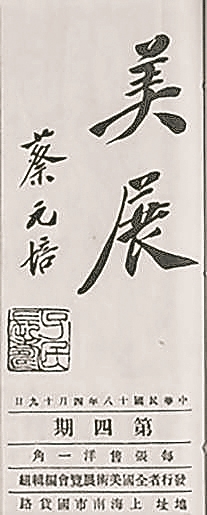 美展
蔡元培
中華民國十八年四月十九日
第四期
每張售洋一角
發行者全國美術展覽會編輯組
地址上海南市國貨路